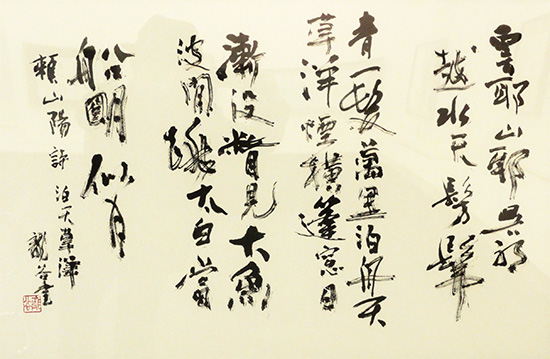 雲耶山耶呉耶
越水天髣髴
青一髪萬里泊舟天
草洋煙横篷窓日
漸没瞥見大魚
波間跳太白當
船朙似月
頼山陽詩 泊天草洋
谷書